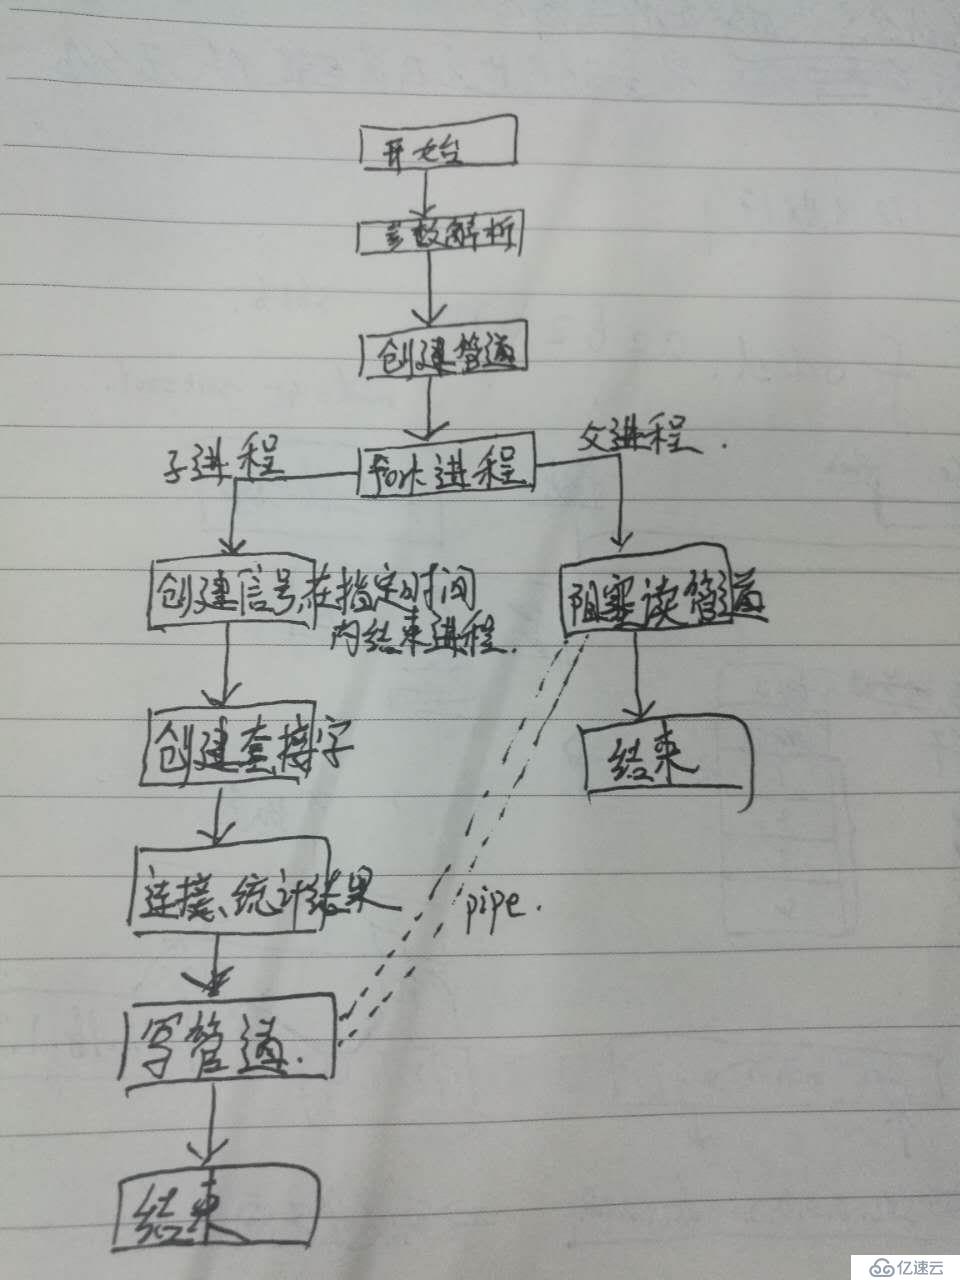 开始
参数解析
创建管道
子进程
fork进程
父进程.
创建信号,在指定时间
内结束进程.
阻塞读管道
创建套接字
结束
连接、统计结果
pipe.
写管道.
结束
亿速云